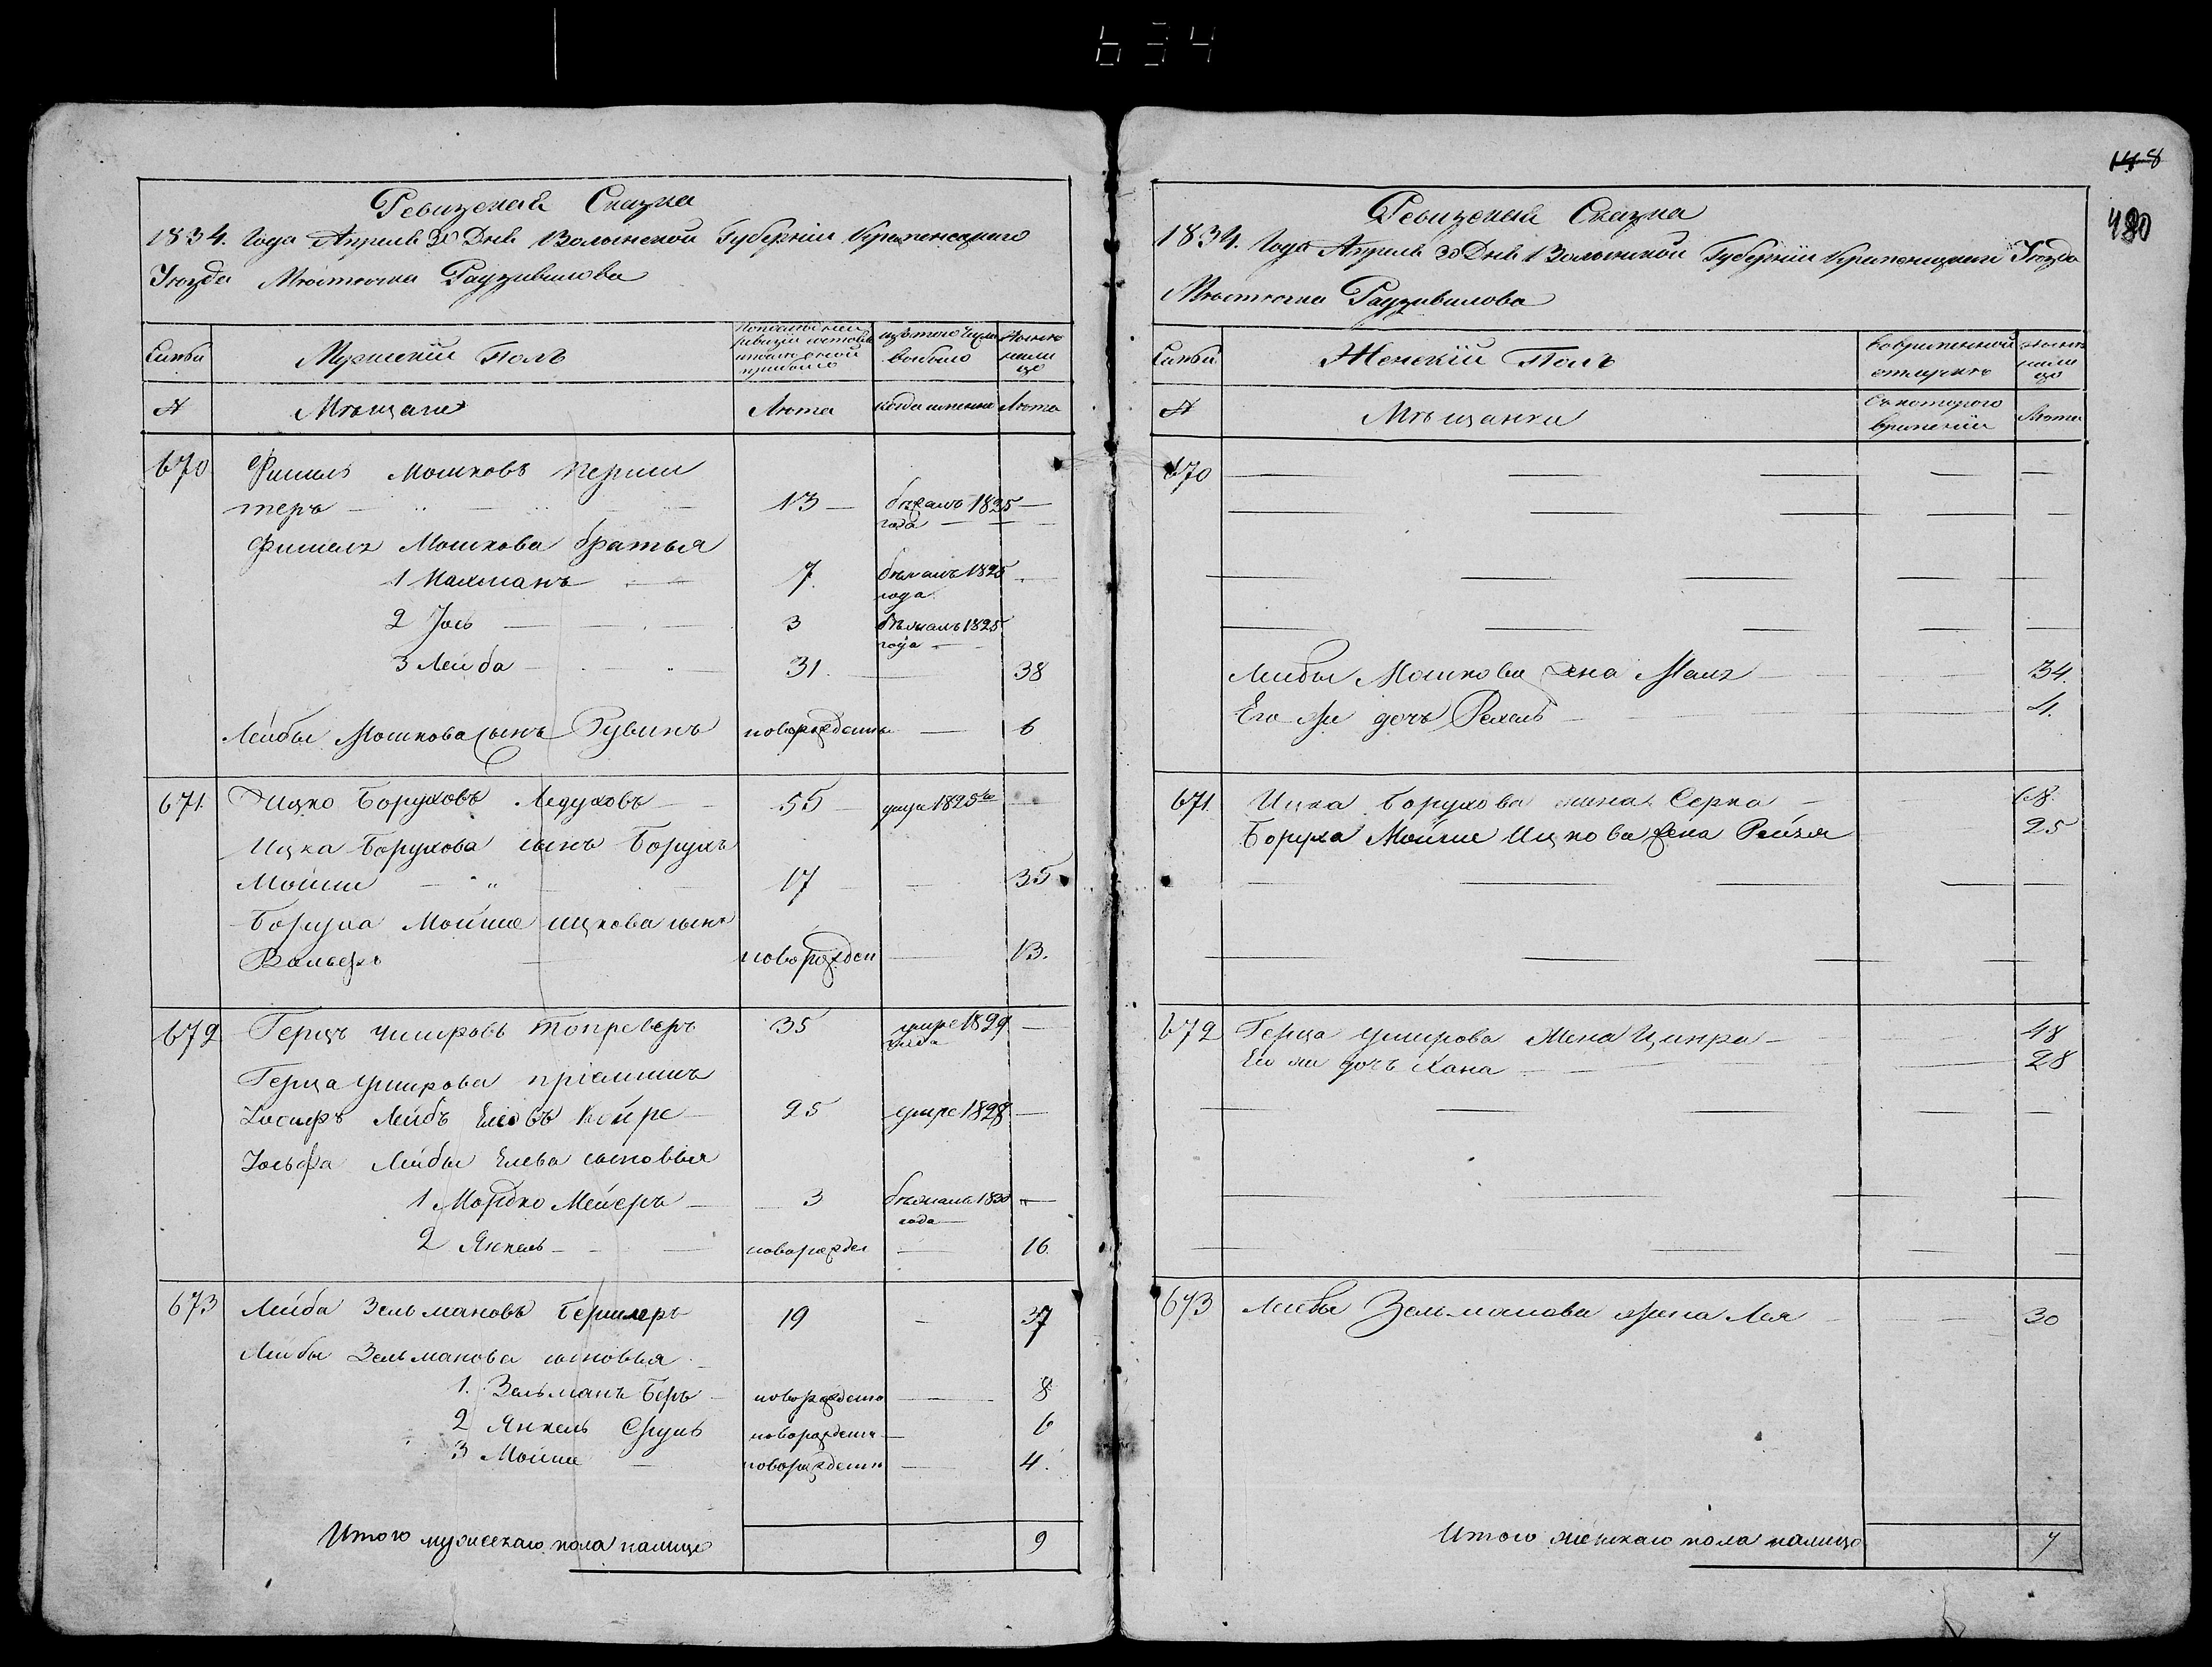 634
148
480
Ревизская Сказка
1834. Года Апреля 30 Дня Волынской Губернии Кременецкаго
Уезда Местечка Радзивилова
Семьи
Мужеский Полъ
По последней ревизии состояло и после оной прибыло
изъ того числа выбыло
Ныне на лицо
№
Мещане
Лета
когда именно
Лета
670 Фишель Мошковъ
теръ 13 бежалъ 1825 года
Фишеля Мошкова братья
1 Нахманъ 7 бежалъ 1825 года
2 Іось 3 бежалъ 1825 года
3 Лейба 31. 38
Лейбы Мошкова сынъ Рувинъ новорожденъ 6
671. Ицко Боруховъ 55 умре 1825
Ицка Борухова сынъ Борухъ
Мойше 17 35
Боруха Мойше Ицкова сынъ
новорожден 13.
672 Герцъ 35 умре 1829 года
Герца пріемышъ
Іосифъ Лейбъ 25 умре 1828
Іосифа Лейбы Елева сыновья
1 Мордко Мейеръ 3 бежалъ 1830 года
2 Янкель новорожден 16
673 Лейба Зельмановъ 19 37
Лейбы Зельманова сыновья
1. Зельманъ Беръ новорожденъ 8
2 Янкель Сруль новорожденъ 6
3 Мойше новорожденъ 4.
Итого мужескаго пола налицо 9
Ревизская Сказка
1834. Года Апреля 30 Дня Волынской Губерніи Кременецкаго Уезда
Местечка Радзивилова
Семьи
Женскій Полъ
Во временной отлучке
Ныне на лицо
№
Мещанки
Съ котораго времени
Лета
670
Лейбы Мошкова жена 34.
Его же дочь Рехель 4.
671. Ицка Борухова жена Серка 68.
Боруха Мойше Ицкова жена Рейзя 25
672 Герца жена 48
Его же дочь Хана 28
673 Лейбы Зельманова жена Лея 30
Итого женскаго пола налицо 7